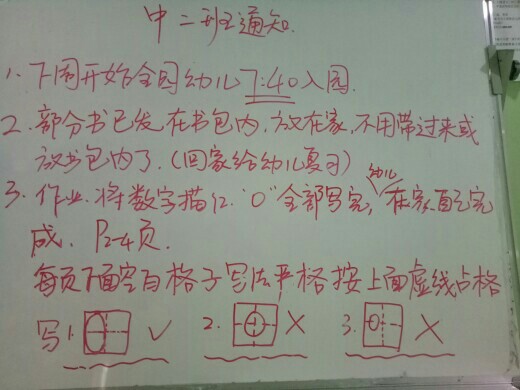 中二班通知.
1. 下周开始全园幼儿7:40入园.
2. 部分书已发在书包内,放在家,不用带过来或
放书包内了.(回家给幼儿复习)
3. 作业.将数字描红"0"全部写完,幼儿在家自己完
成. P2-4页.
每页下面空白格子写法严格按上面虚线占格
写 1. ✓ 2. × 3. ×